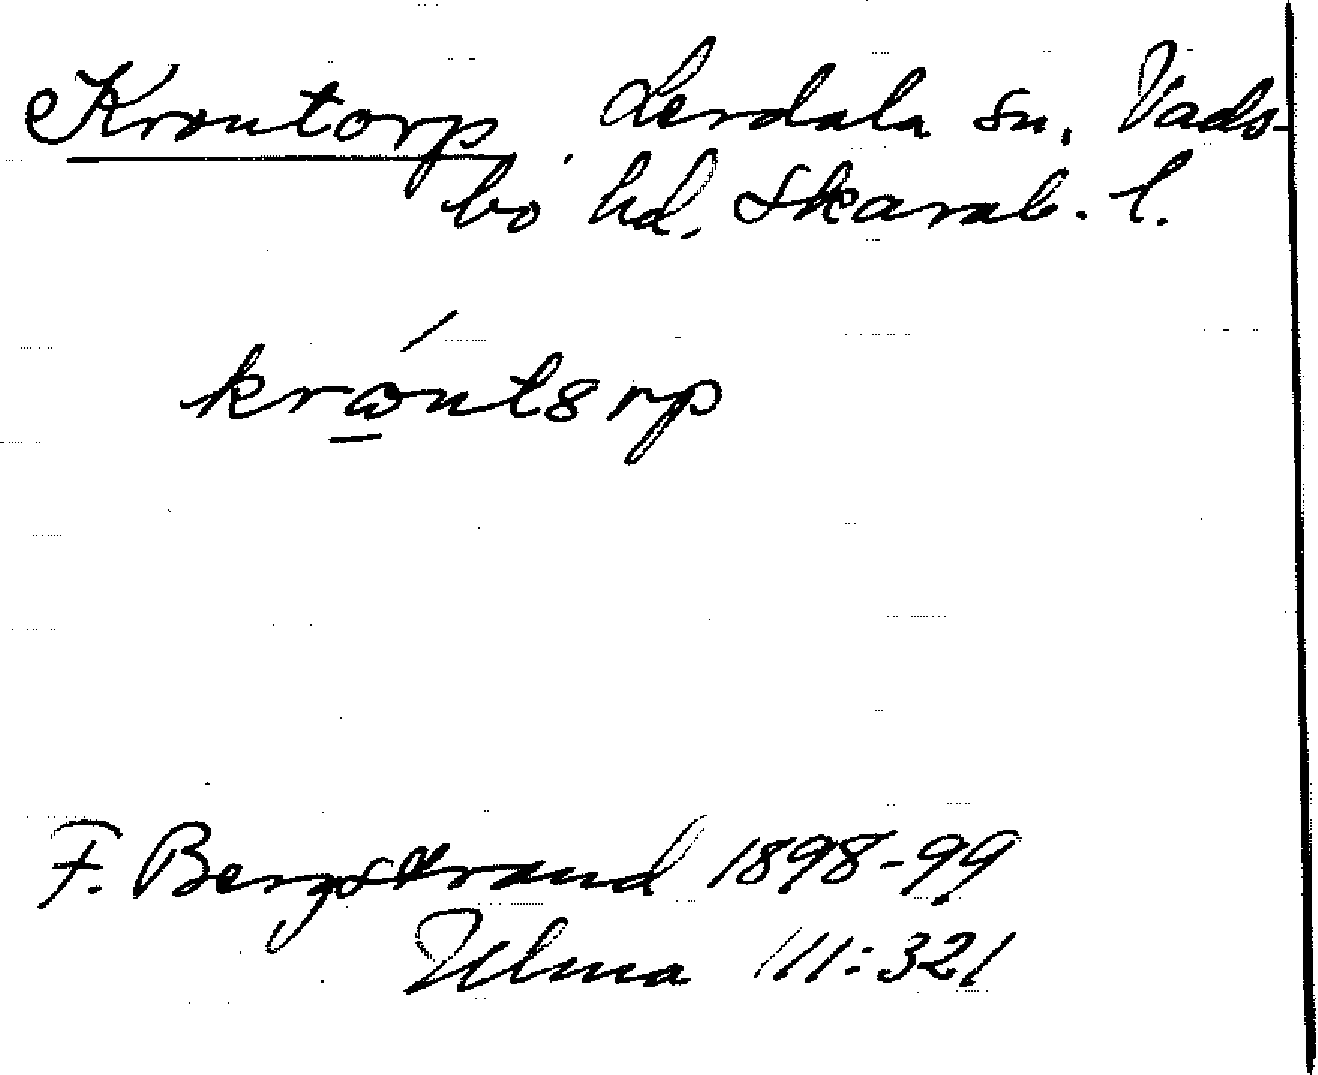 Krontorp. Lerdala sn, Vads-
bo hd, Skarab. l.
F. Bergstrand 1898-99
Ulma 111:321